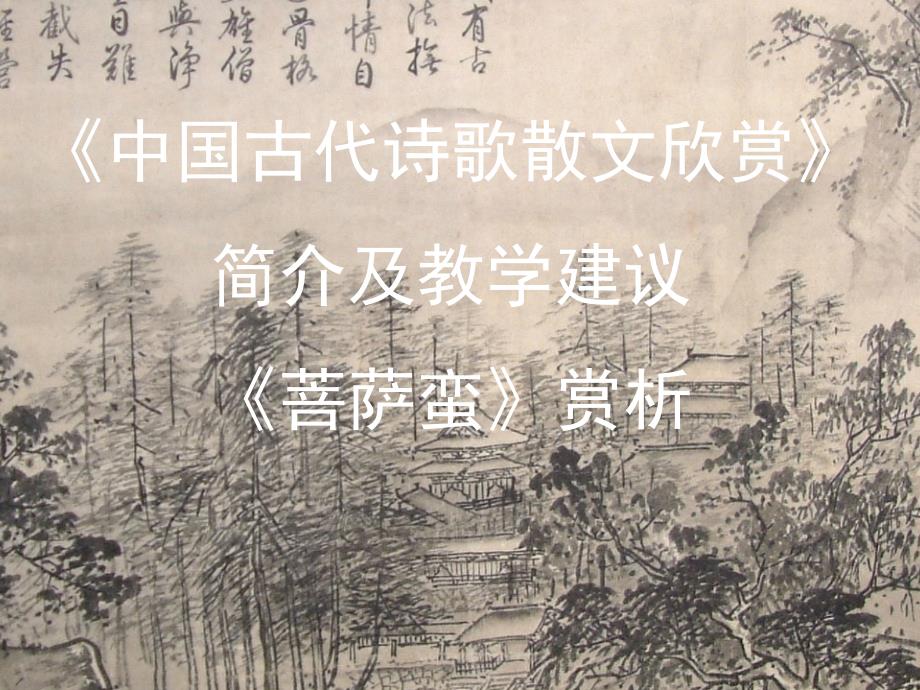 《中国古代诗歌散文欣赏》
简介及教学建议
《菩萨蛮》赏析
有古
法撫
情自
骨格
雄僧
與淨
自難
截失